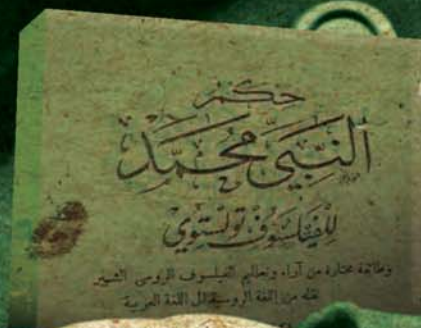 حكم
النبي محمد
للفيلسوف تولستوي
وطائفة مختارة من آراء وتعاليم الفيلسوف الروسي الشهير
نقله من اللغة الروسية إلى اللغة العربية